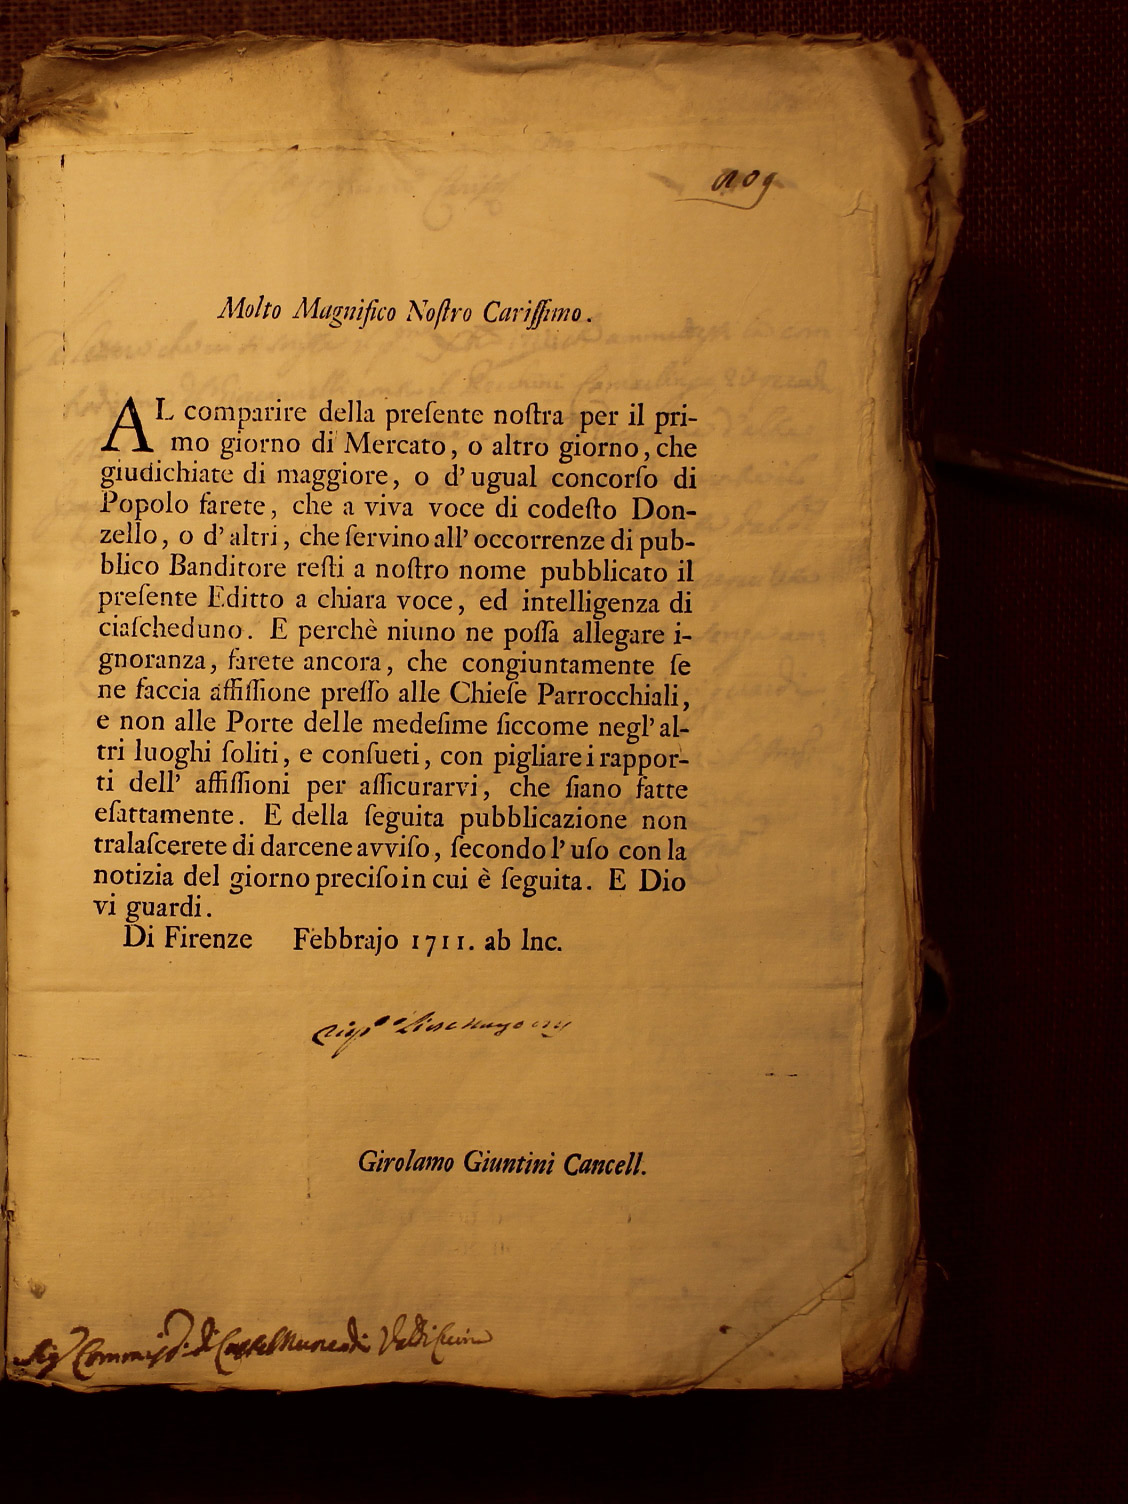 109
Molto Magnifico Noſtro Cariſſimo.
AL comparire della preſente noſtra per il pri-
mo giorno di Mercato, o altro giorno, che
giudichiate di maggiore, o d' ugual concorſo di
Popolo farete, che a viva voce di codeſto Don-
zello, o d' altri, che ſervino all' occorrenze di pub-
blico Banditore reſti a noſtro nome pubblicato il
preſente Editto a chiara voce, ed intelligenza di
ciaſcheduno. E perchè niuno ne poſſa allegare i-
gnoranza, farete ancora, che congiuntamente ſe
ne faccia affiſſione preſſo alle Chieſe Parrocchiali,
e non alle Porte delle medeſime ſiccome negl' al-
tri luoghi ſoliti, e conſueti, con pigliare i rappor-
ti dell' affiſſioni per aſſicurarvi, che ſiano fatte
eſattamente. E della ſeguita pubblicazione non
tralaſcerete di darcene avviſo, ſecondo l' uſo con la
notizia del giorno preciſo in cui è ſeguita. E Dio
vi guardi.
Di Firenze Febbrajo 1711. ab Inc.
Girolamo Giuntini Cancell.
Sig.r Commiss.o di Castel Nuovo di Val di Cecina